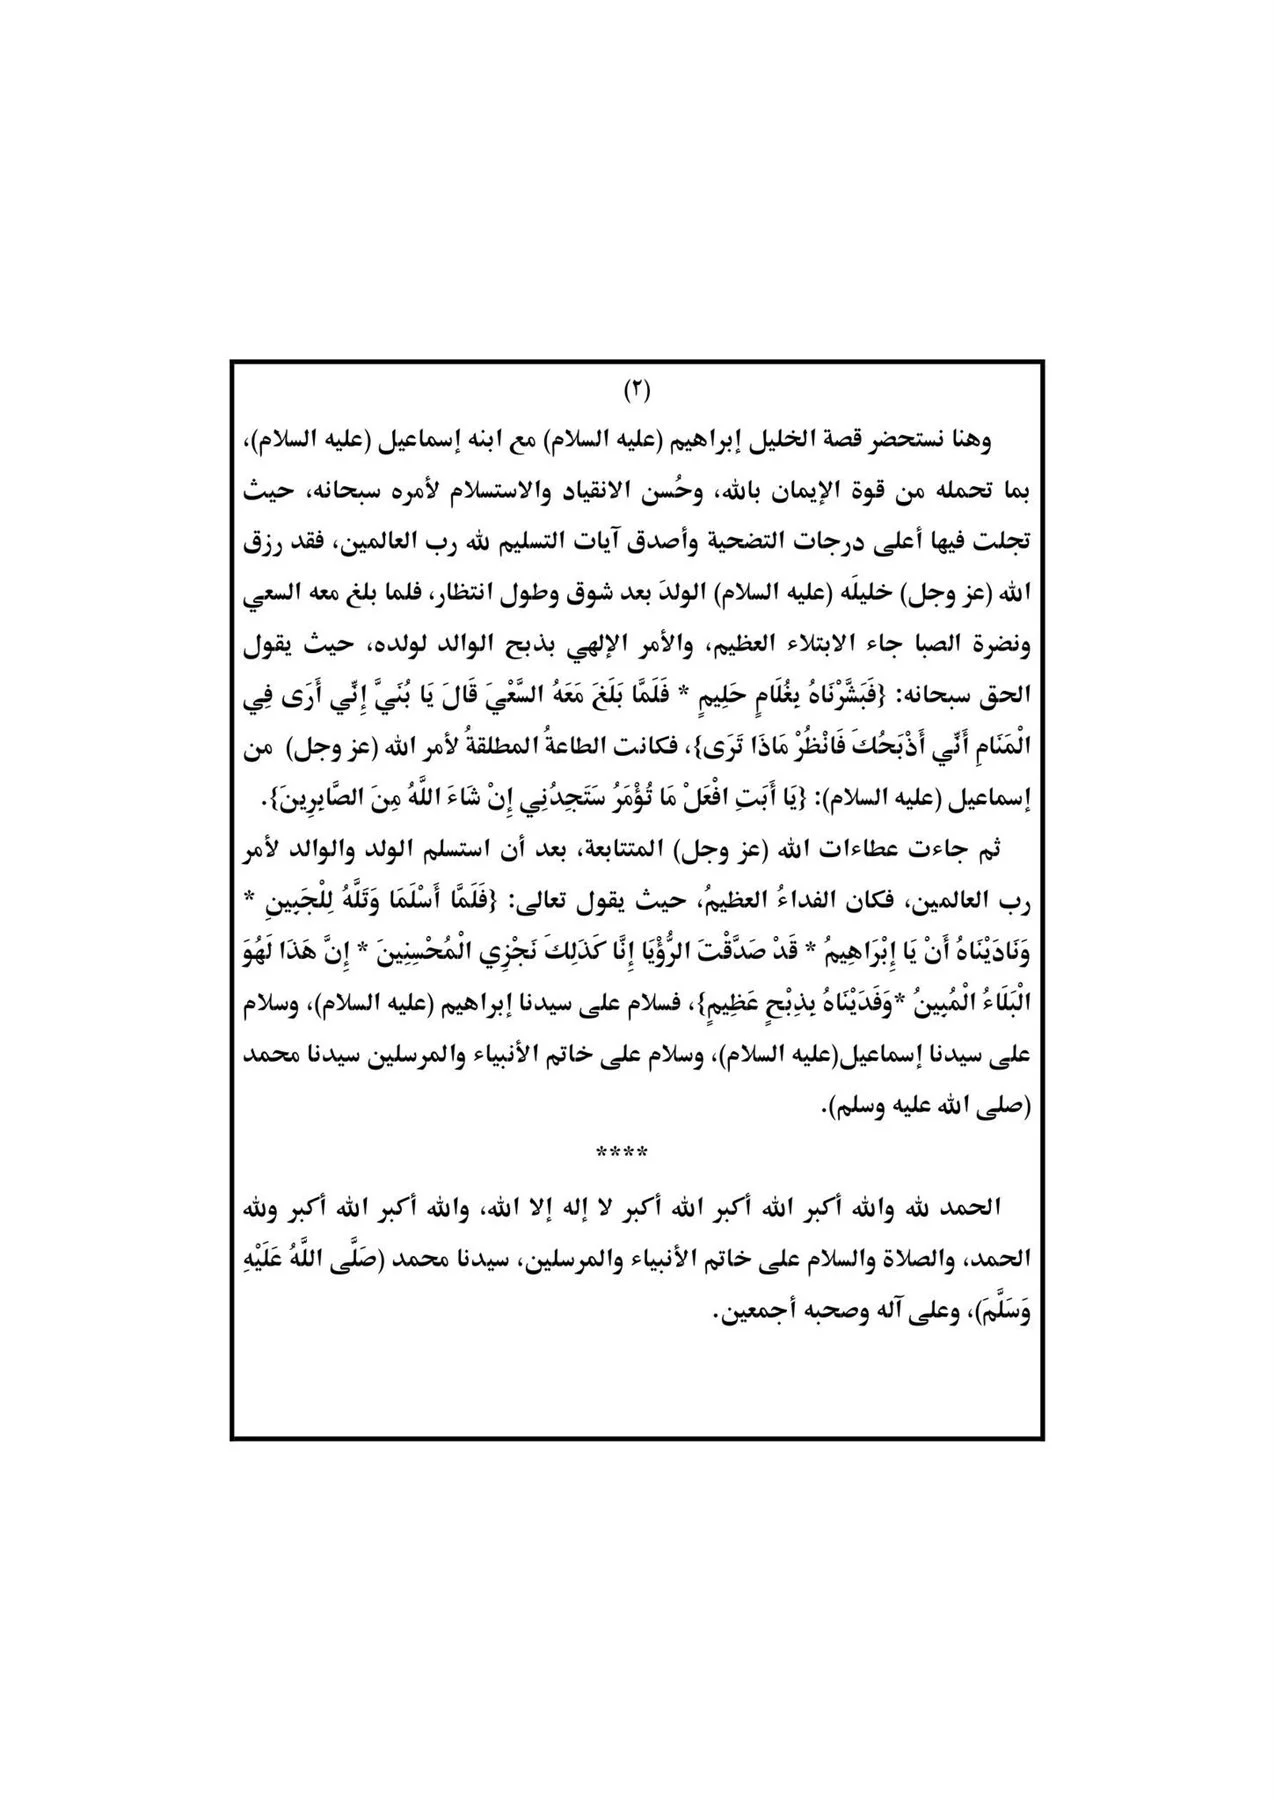 (٢)
وهنا نستحضر قصة الخليل إبراهيم (عليه السلام) مع ابنه إسماعيل (عليه السلام)،
بما تحمله من قوة الإيمان بالله، وحُسن الانقياد والاستسلام لأمره سبحانه، حيث
تجلت فيها أعلى درجات التضحية وأصدق آيات التسليم لله رب العالمين، فقد رزق
الله (عز وجل) خليلَه (عليه السلام) الولدَ بعد شوق وطول انتظار، فلما بلغ معه السعي
ونضرة الصبا جاء الابتلاء العظيم، والأمر الإلهي بذبح الوالد لولده، حيث يقول
الحق سبحانه: {فَبَشَّرْنَاهُ بِغُلَامٍ حَلِيمٍ * فَلَمَّا بَلَغَ مَعَهُ السَّعْيَ قَالَ يَا بُنَيَّ إِنِّي أَرَى فِي
الْمَنَامِ أَنِّي أَذْبَحُكَ فَانْظُرْ مَاذَا تَرَى}، فكانت الطاعةُ المطلقةُ لأمر الله (عز وجل) من
إسماعيل (عليه السلام): {يَا أَبَتِ افْعَلْ مَا تُؤْمَرُ سَتَجِدُنِي إِنْ شَاءَ اللَّهُ مِنَ الصَّابِرِينَ}.
ثم جاءت عطاءات الله (عز وجل) المتتابعة، بعد أن استسلم الولد والوالد لأمر
رب العالمين، فكان الفداءُ العظيمُ، حيث يقول تعالى: {فَلَمَّا أَسْلَمَا وَتَلَّهُ لِلْجَبِينِ *
وَنَادَيْنَاهُ أَنْ يَا إِبْرَاهِيمُ * قَدْ صَدَّقْتَ الرُّؤْيَا إِنَّا كَذَلِكَ نَجْزِي الْمُحْسِنِينَ * إِنَّ هَذَا لَهُوَ
الْبَلَاءُ الْمُبِينُ *وَفَدَيْنَاهُ بِذِبْحٍ عَظِيمٍ}، فسلام على سيدنا إبراهيم (عليه السلام)، وسلام
على سيدنا إسماعيل(عليه السلام)، وسلام على خاتم الأنبياء والمرسلين سيدنا محمد
(صلى الله عليه وسلم).
****
الحمد لله والله أكبر الله أكبر الله أكبر لا إله إلا الله، والله أكبر الله أكبر ولله
الحمد، والصلاة والسلام على خاتم الأنبياء والمرسلين، سيدنا محمد (صَلَّى اللَّهُ عَلَيْهِ
وَسَلَّمَ)، وعلى آله وصحبه أجمعين.